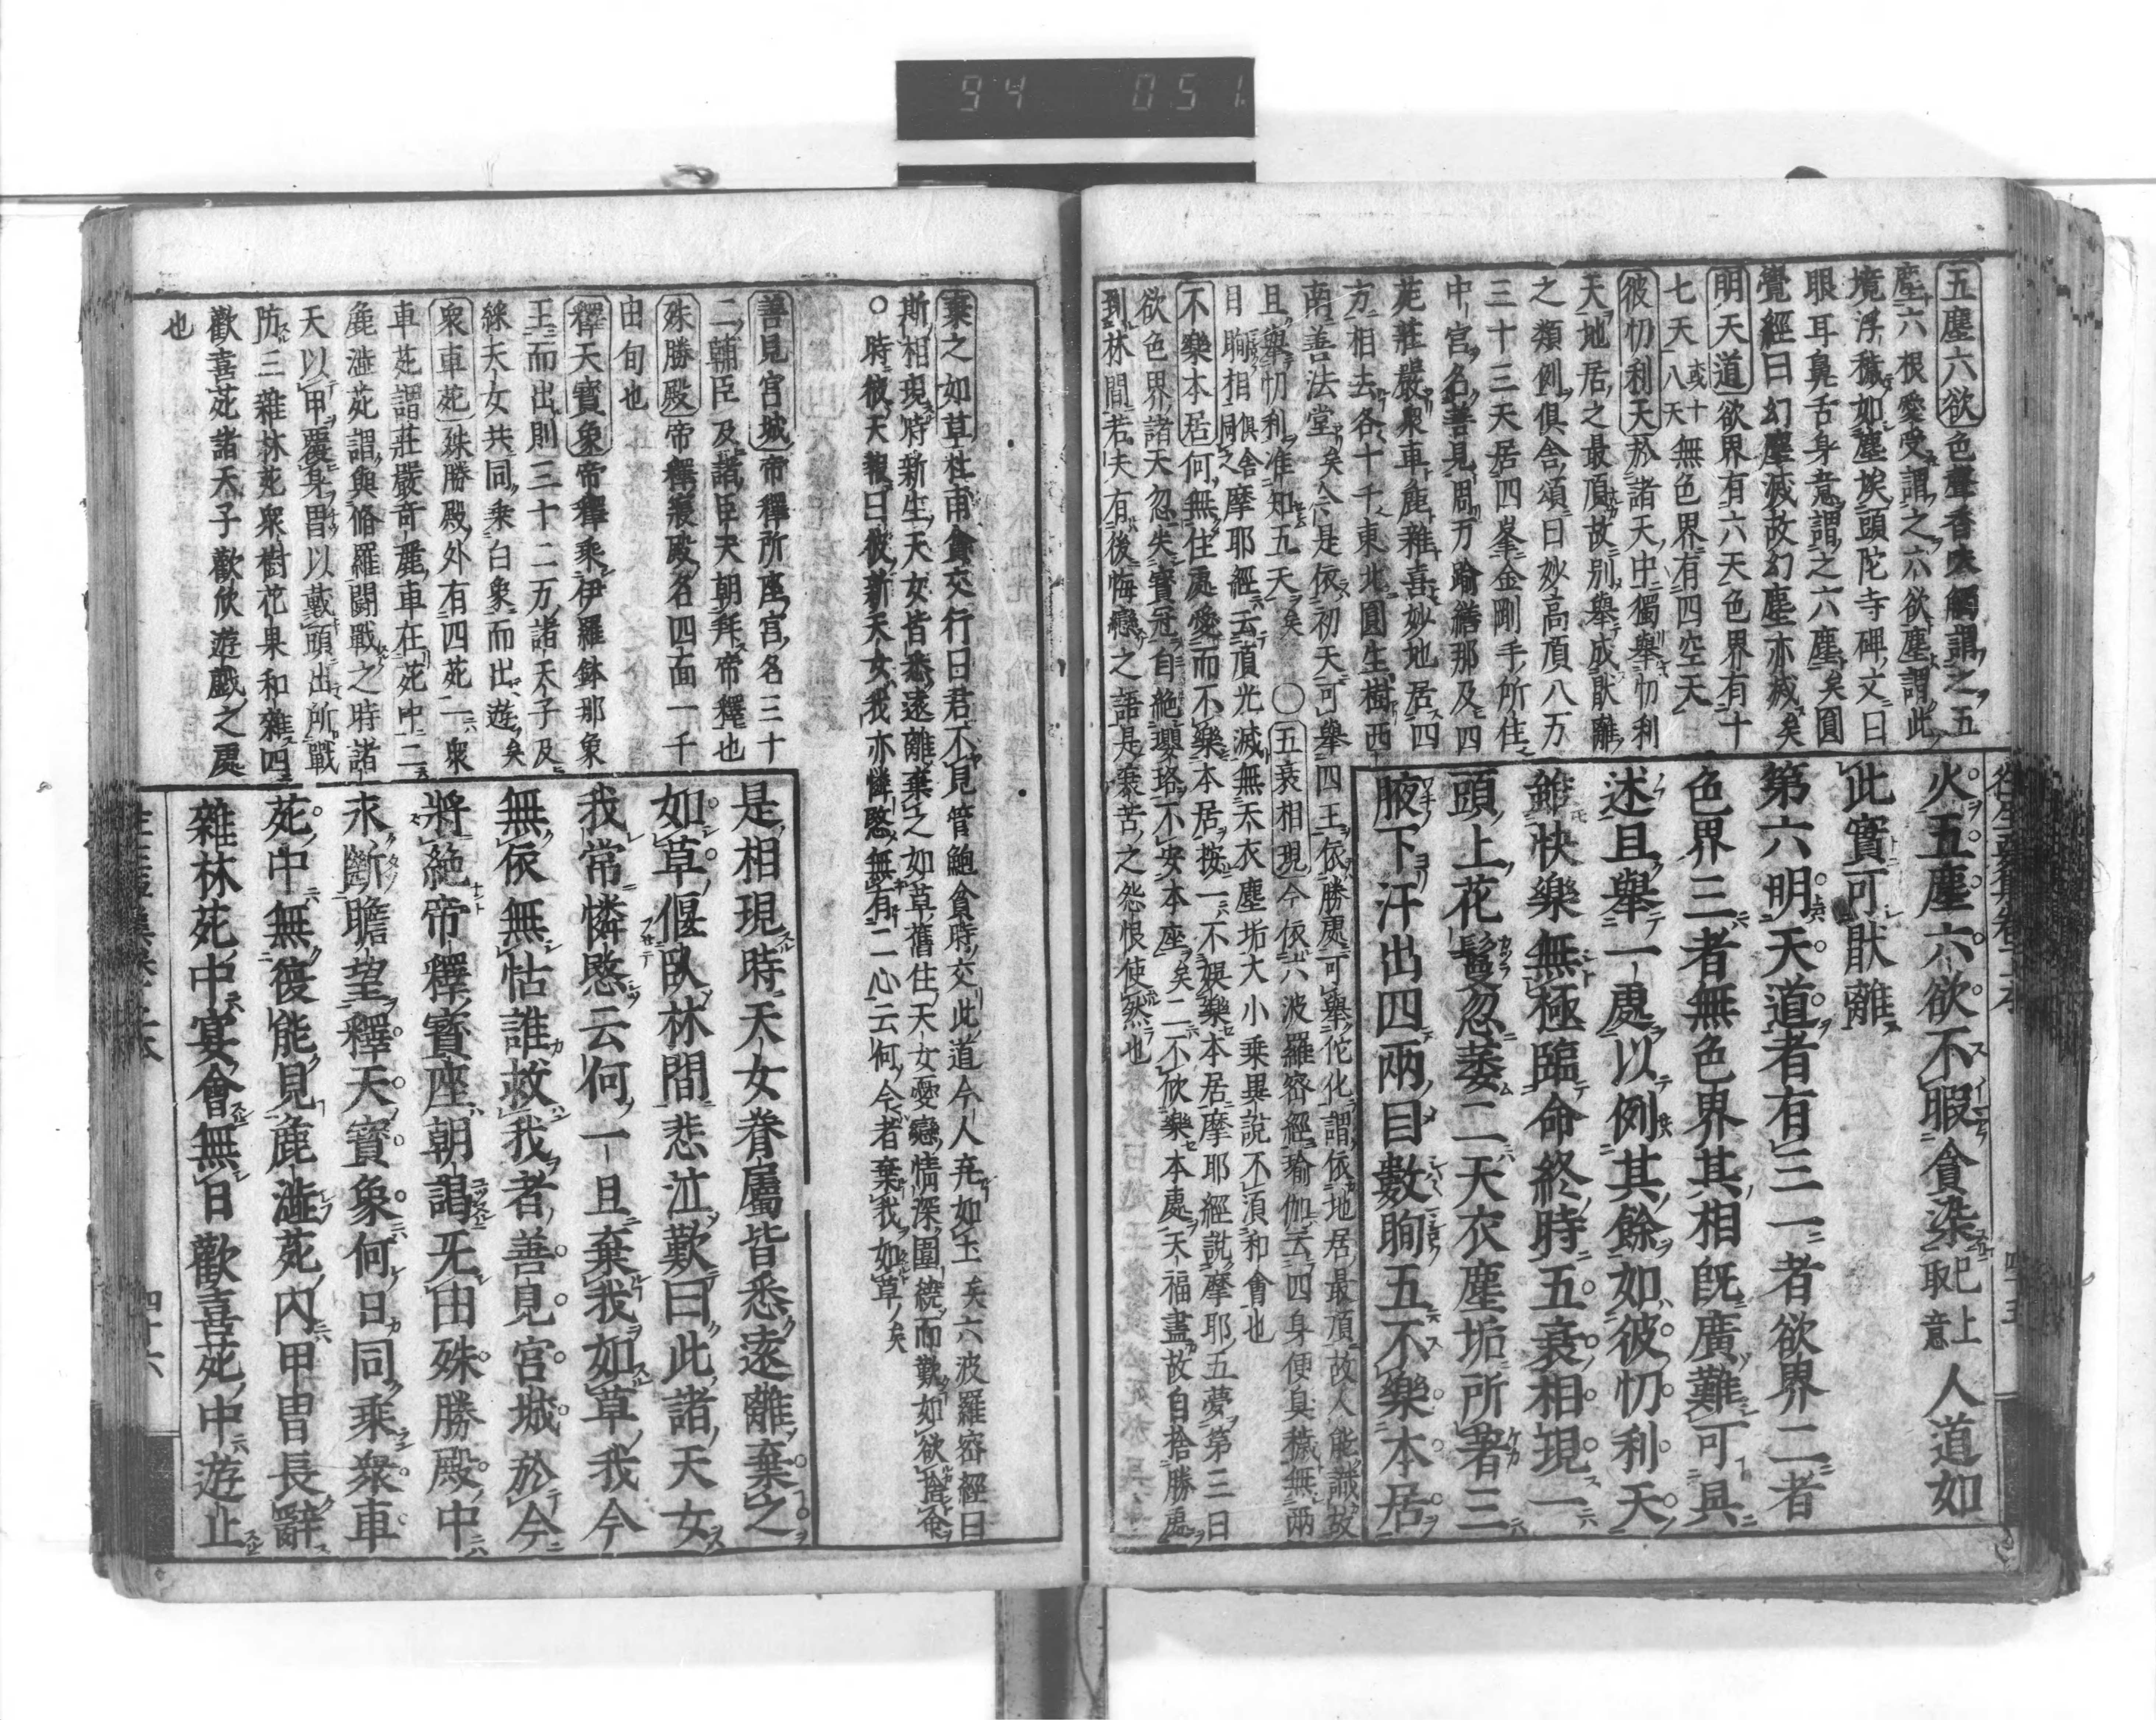 94 051
五塵六欲色聲香味觸謂之五
塵六根愛受謂之六欲塵謂此
境浮穢如塵埃頭陀寺碑文曰
眼耳鼻舌身意謂之六塵矣圓
覺經曰幻塵滅故幻塵亦滅矣
明天道欲界有六天色界有十
七天或十八天無色界有四空天
彼忉利天於諸天中獨舉忉利
天地居之最頂故別舉成猒離
之類例俱舍頌曰妙高頂八万
三十三天居四峯金剛手所住
中宮名善見周万踰繕那及四
苑莊嚴衆車麁雜喜妙地居四
方相去各十千東北圓生樹西
南善法堂矣今是依初天可舉四王依勝處可舉佗化謂依地居最頂故人能識故
且舉忉利准知五天矣 〇五衰相現今依六波羅密經瑜伽云四身便臭穢無兩
目瞬相同之俱舍摩耶經云頂光滅無天衣塵垢大小乘異說不須和會也
不樂本居何無住處愛而不樂本居按一不娛樂本居摩耶經說摩耶五夢第三曰
欲色界諸天忽失寶冠自絶瓔珞不安本座矣二不欣樂本處天福盡故自捨勝處
到林間若夫有後悔戀之語是衰苦之怨恨使然也
火五塵六欲不暇貪染已上取意人道如
此實可猒離
第六明天道者有三一者欲界二者
色界三者無色界其相既廣難可具
述且舉一處以例其餘如彼忉利天
雖快樂無極臨命終時五衰相現一
頭上花鬘忽萎二天衣塵垢所著三
腋下汗出四兩目數眴五不樂本居
棄之如草杜甫貪交行曰君不見管鮑貧時交此道今人弃如土矣六波羅密經曰
斯相現時新生天女皆悉遠離棄之如草舊住天女愛戀情深圍繞而歎如欲捨命
〇時彼天報曰彼新天女我亦憐愍無有二心云何今者棄我如草矣
善見宮城帝釋所座宮名三十
二輔臣及諸臣天朝拜帝釋也
殊勝殿帝釋寢殿名四面一千
由旬也
釋天寶象帝釋乘伊羅鉢那象
王而出則三十二万諸天子及
綵天女共同乘白象而出遊矣
衆車苑殊勝殿外有四苑一衆
車苑謂莊嚴奇麗車在苑中二
麁澁苑謂與脩羅鬪戰之時諸
天以甲覆身冑以戴頭出所戰
防三雜林苑衆樹花果和雜四
歡喜苑諸天子歡欣遊戲之處
也
是相現時天女眷屬皆悉遠離棄之
如草偃臥林間悲泣歎曰此諸天女
我常憐愍云何一旦棄我如草我今
無依無怙誰救我者善見宮城於今
將絶帝釋寶座朝謁无由殊勝殿中
永斷瞻望釋天寶象何日同乘衆車
苑中無復能見麁澁苑内甲冑長辭
雜林苑中宴會無日歡喜苑中遊止
四十六